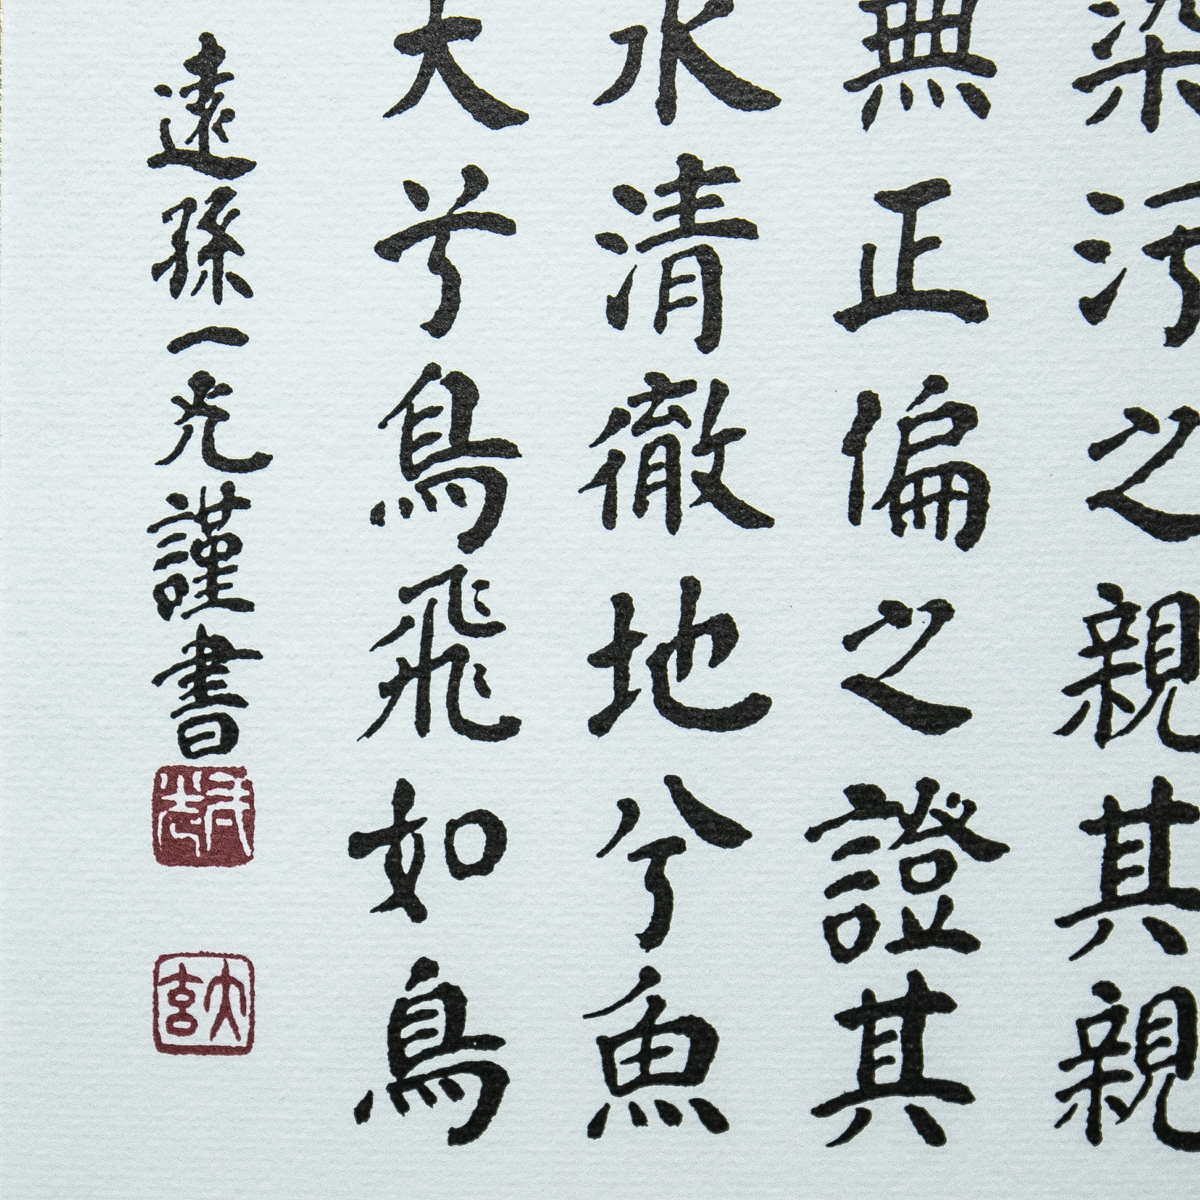 染污之親其親
無正偏之證其
水清徹地兮魚
大兮鳥飛如鳥
遠孫一光謹書